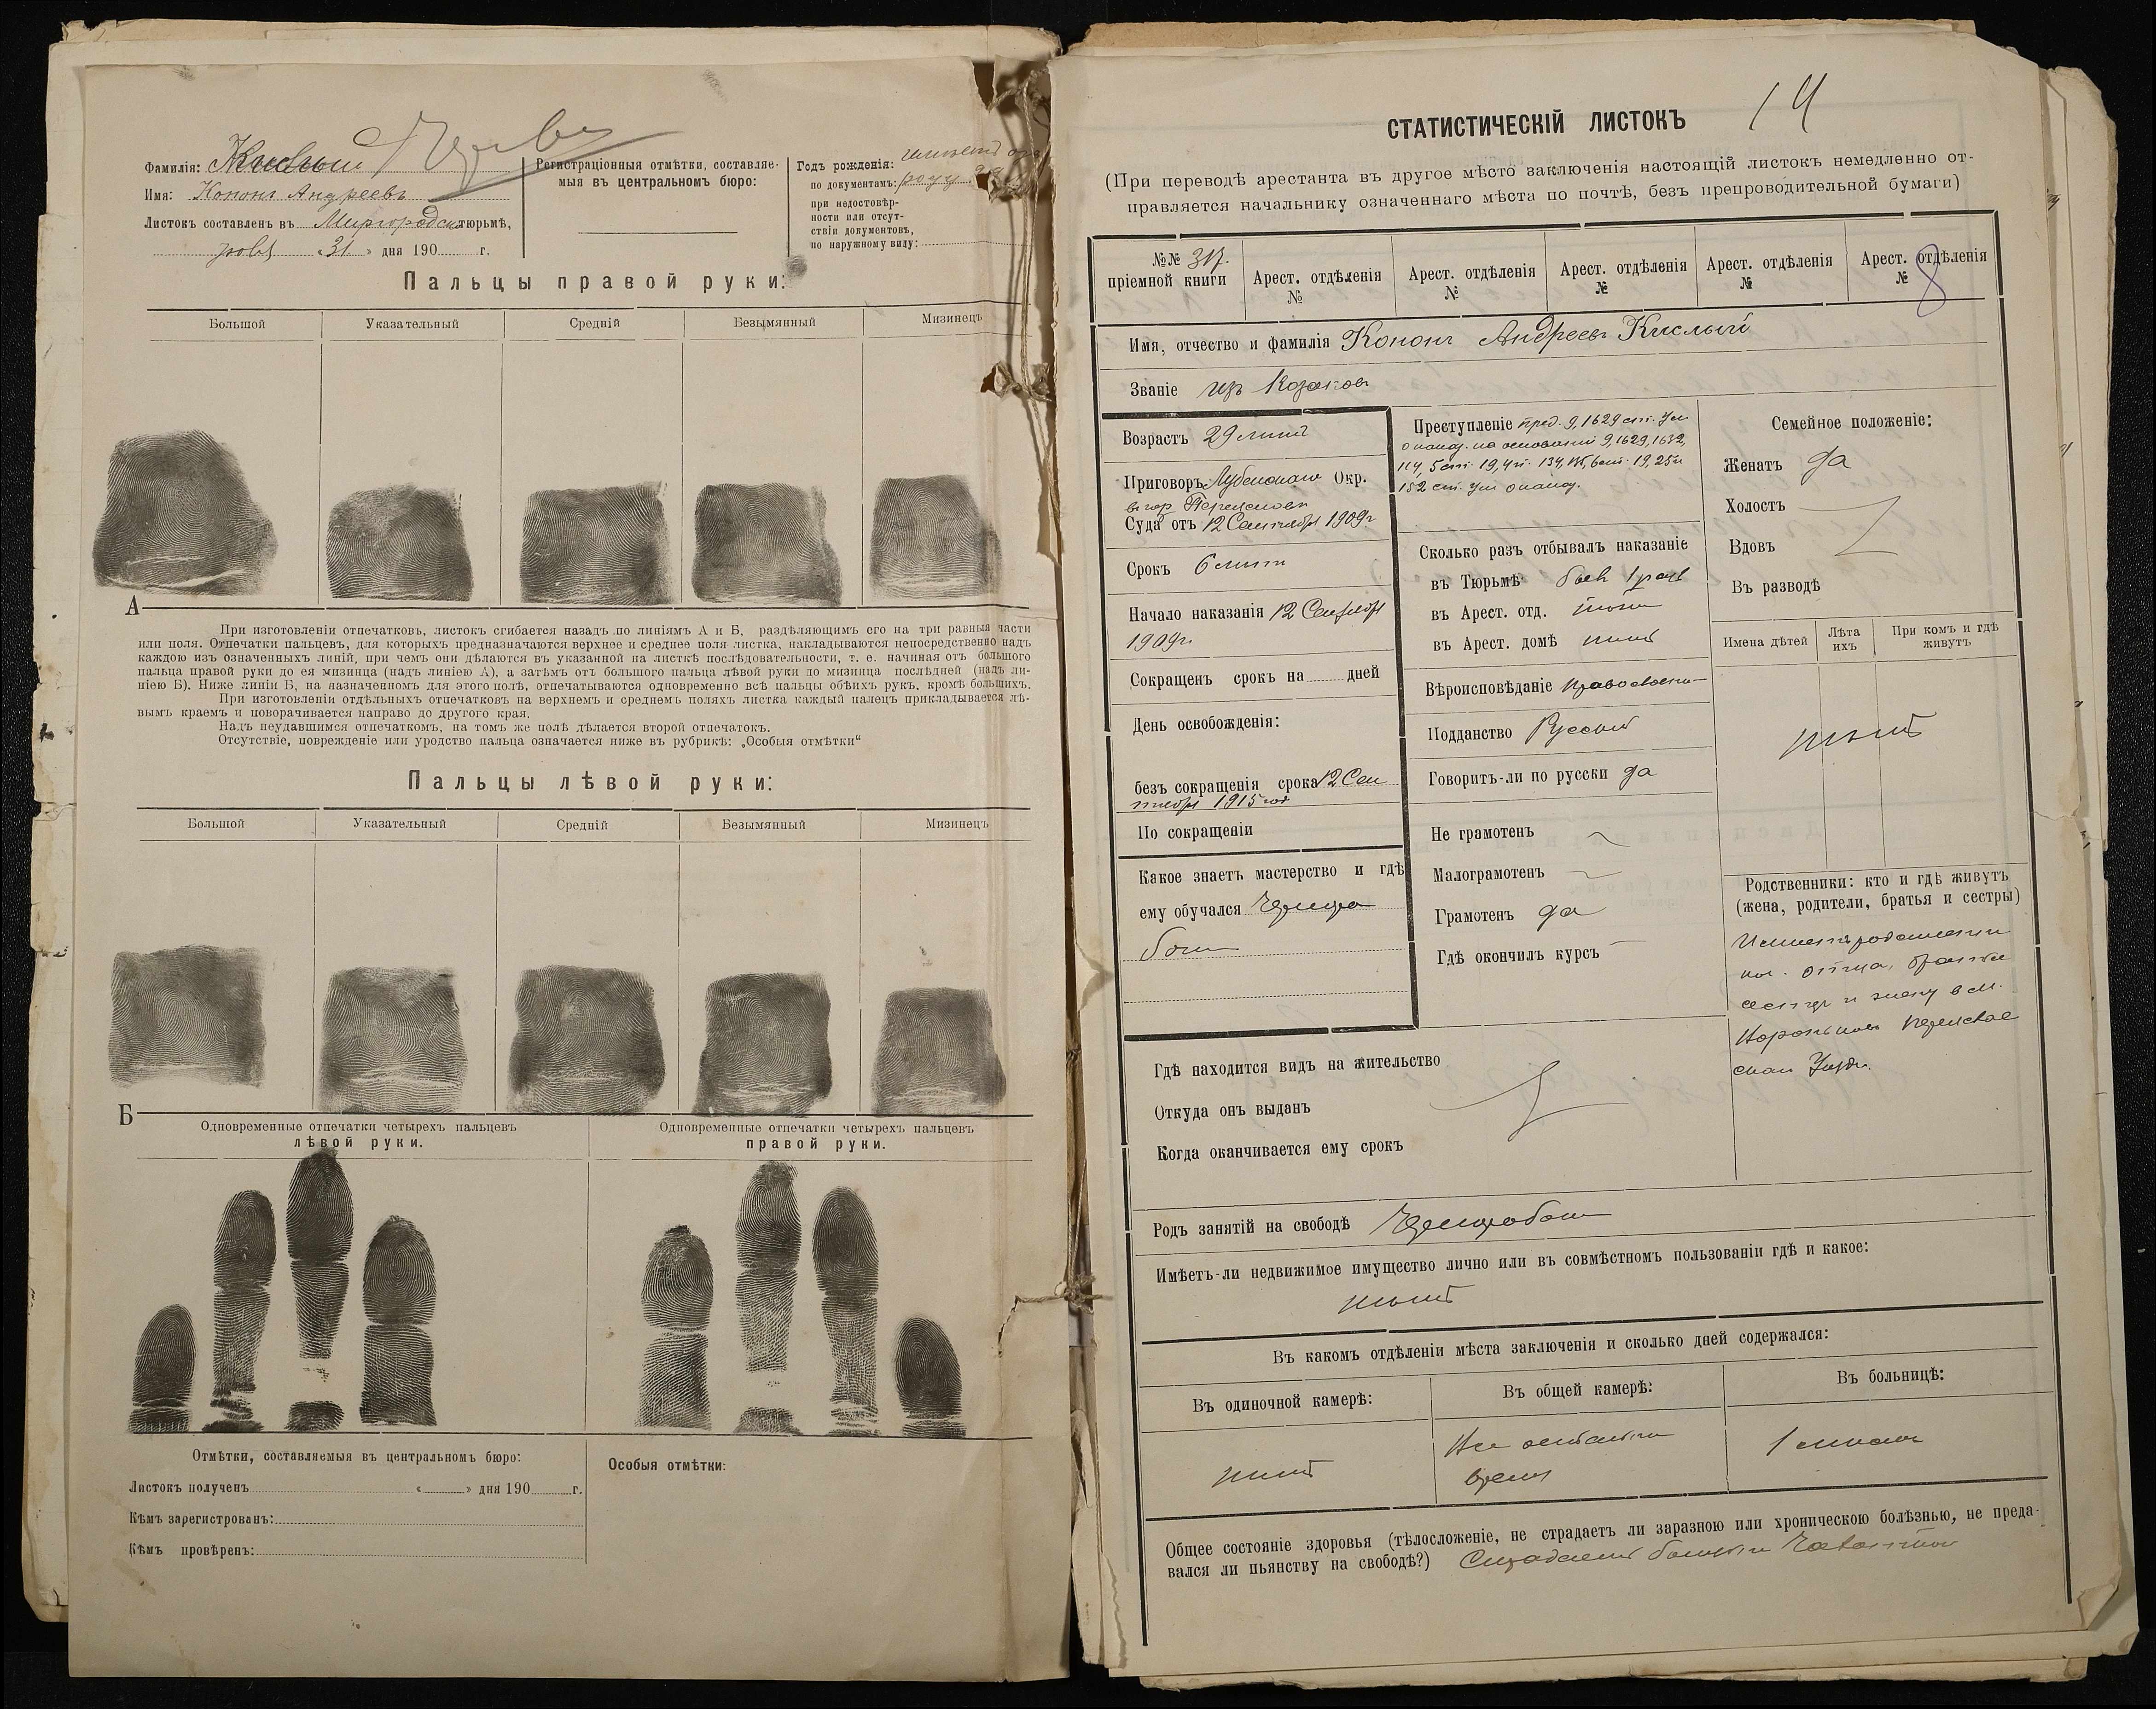 Фамилія: Кислый
Имя: Кононъ Андреевъ
Листокъ составленъ въ Миргородской тюрьмѣ,
«31» дня 190 г.
Регистраціонныя отмѣтки, составляе-
мыя въ центральномъ бюро:
Годъ рожденія:
по документамъ:
при недостовѣр-
ности или отсут-
ствіи документовъ,
по наружному виду:
Пальцы правой руки:
Большой Указательный Средній Безымянный Мизинецъ
А
При изготовленіи отпечатковъ, листокъ сгибается назадъ по линіямъ А и Б, раздѣляющимъ его на три равныя части
или поля. Отпечатки пальцевъ, для которыхъ предназначаются верхнее и среднее поля листка, накладываются непосредственно надъ
каждою изъ означенныхъ линій, при чемъ они дѣлаются въ указанной на листкѣ послѣдовательности, т. е. начиная отъ большого
пальца правой руки до ея мизинца (надъ линіею А), а затѣмъ отъ большого пальца лѣвой руки до мизинца послѣдней (надъ ли-
ніею Б). Ниже линіи Б, на назначенномъ для этого полѣ, отпечатываются одновременно всѣ пальцы обѣихъ рукъ, кромѣ большихъ.
При изготовленіи отдѣльныхъ отпечатковъ на верхнемъ и среднемъ поляхъ листка каждый палецъ прикладывается лѣ-
вымъ краемъ и поворачивается направо до другого края.
Надъ неудавшимся отпечаткомъ, на томъ же полѣ дѣлается второй отпечатокъ.
Отсутствіе, поврежденіе или уродство пальца означается ниже въ рубрикѣ: „Особыя отмѣтки“
Пальцы лѣвой руки:
Большой Указательный Средній Безымянный Мизинецъ
Б
Одновременные отпечатки четырехъ пальцевъ
лѣвой руки.
Одновременные отпечатки четырехъ пальцевъ
правой руки.
Отмѣтки, составляемыя въ центральномъ бюро:
Листокъ полученъ « » дня 190 г.
Кѣмъ зарегистрованъ:
Кѣмъ провѣренъ:
Особыя отмѣтки:
14
СТАТИСТИЧЕСКІЙ ЛИСТОКЪ
(При переводѣ арестанта въ другое мѣсто заключенія настоящій листокъ немедленно от-
правляется начальнику означеннаго мѣста по почтѣ, безъ препроводительной бумаги)
№№ 317.
пріемной книги
Арест. отдѣленія
№
Арест. отдѣленія
№
Арест. отдѣленія
№
Арест. отдѣленія
№
Арест. отдѣленія
№ 8
Имя, отчество и фамилія Кононъ Андреевъ Кислый
Званіе изъ Козаковъ
Возрастъ 29 лѣтъ
Приговоръ Лубенскаго Окр.
въ гор.
Суда отъ 12 Сентября 1909 г
Срокъ 6 лѣтъ
Начало наказанія 12 Сентября
1909 г.
Сокращенъ срокъ на дней
День освобожденія:
безъ сокращенія срока 12 Сен
тября 1915 год
По сокращеніи
Какое знаетъ мастерство и гдѣ
ему обучался Чернора
бочій
Преступленіе пред. 9, 1629 ст. Ул
о наказ. на основаніи 9, 1629, 1632,
114, 5 ст. 19, 4 п. 134, 19, 25 и
152 ст. Ул о наказ.
Сколько разъ отбывалъ наказаніе
въ Тюрьмѣ былъ 1 разъ
въ Арест. отд.
въ Арест. домѣ нѣтъ
Вѣроисповѣданіе православн
Подданство Русскій
Говоритъ-ли по русски да
Не грамотенъ
Малограмотенъ
Грамотенъ да
Гдѣ окончилъ курсъ
Семейное положеніе:
Женатъ да
Холостъ
Вдовъ
Въ разводѣ
Имена дѣтей
Лѣта
ихъ
При комъ и гдѣ
живутъ
нѣтъ
Родственники: кто и гдѣ живутъ
(жена, родители, братья и сестры)
отца, братья
сестру и жену в м.
Уѣзд.
Гдѣ находится видъ на жительство
Откуда онъ выданъ
Когда оканчивается ему срокъ
Родъ занятій на свободѣ Чернорабочій
Имѣетъ-ли недвижимое имущество лично или въ совмѣстномъ пользованіи гдѣ и какое:
нѣтъ
Въ какомъ отдѣленіи мѣста заключенія и сколько дней содержался:
Въ одиночной камерѣ:
Въ общей камерѣ:
Въ больницѣ:
нѣтъ
Все остальное
время
1 мѣсяцъ
Общее состояніе здоровья (тѣлосложеніе, не страдаетъ ли заразною или хроническою болѣзнью, не преда-
вался ли пьянству на свободѣ?) Страдаетъ